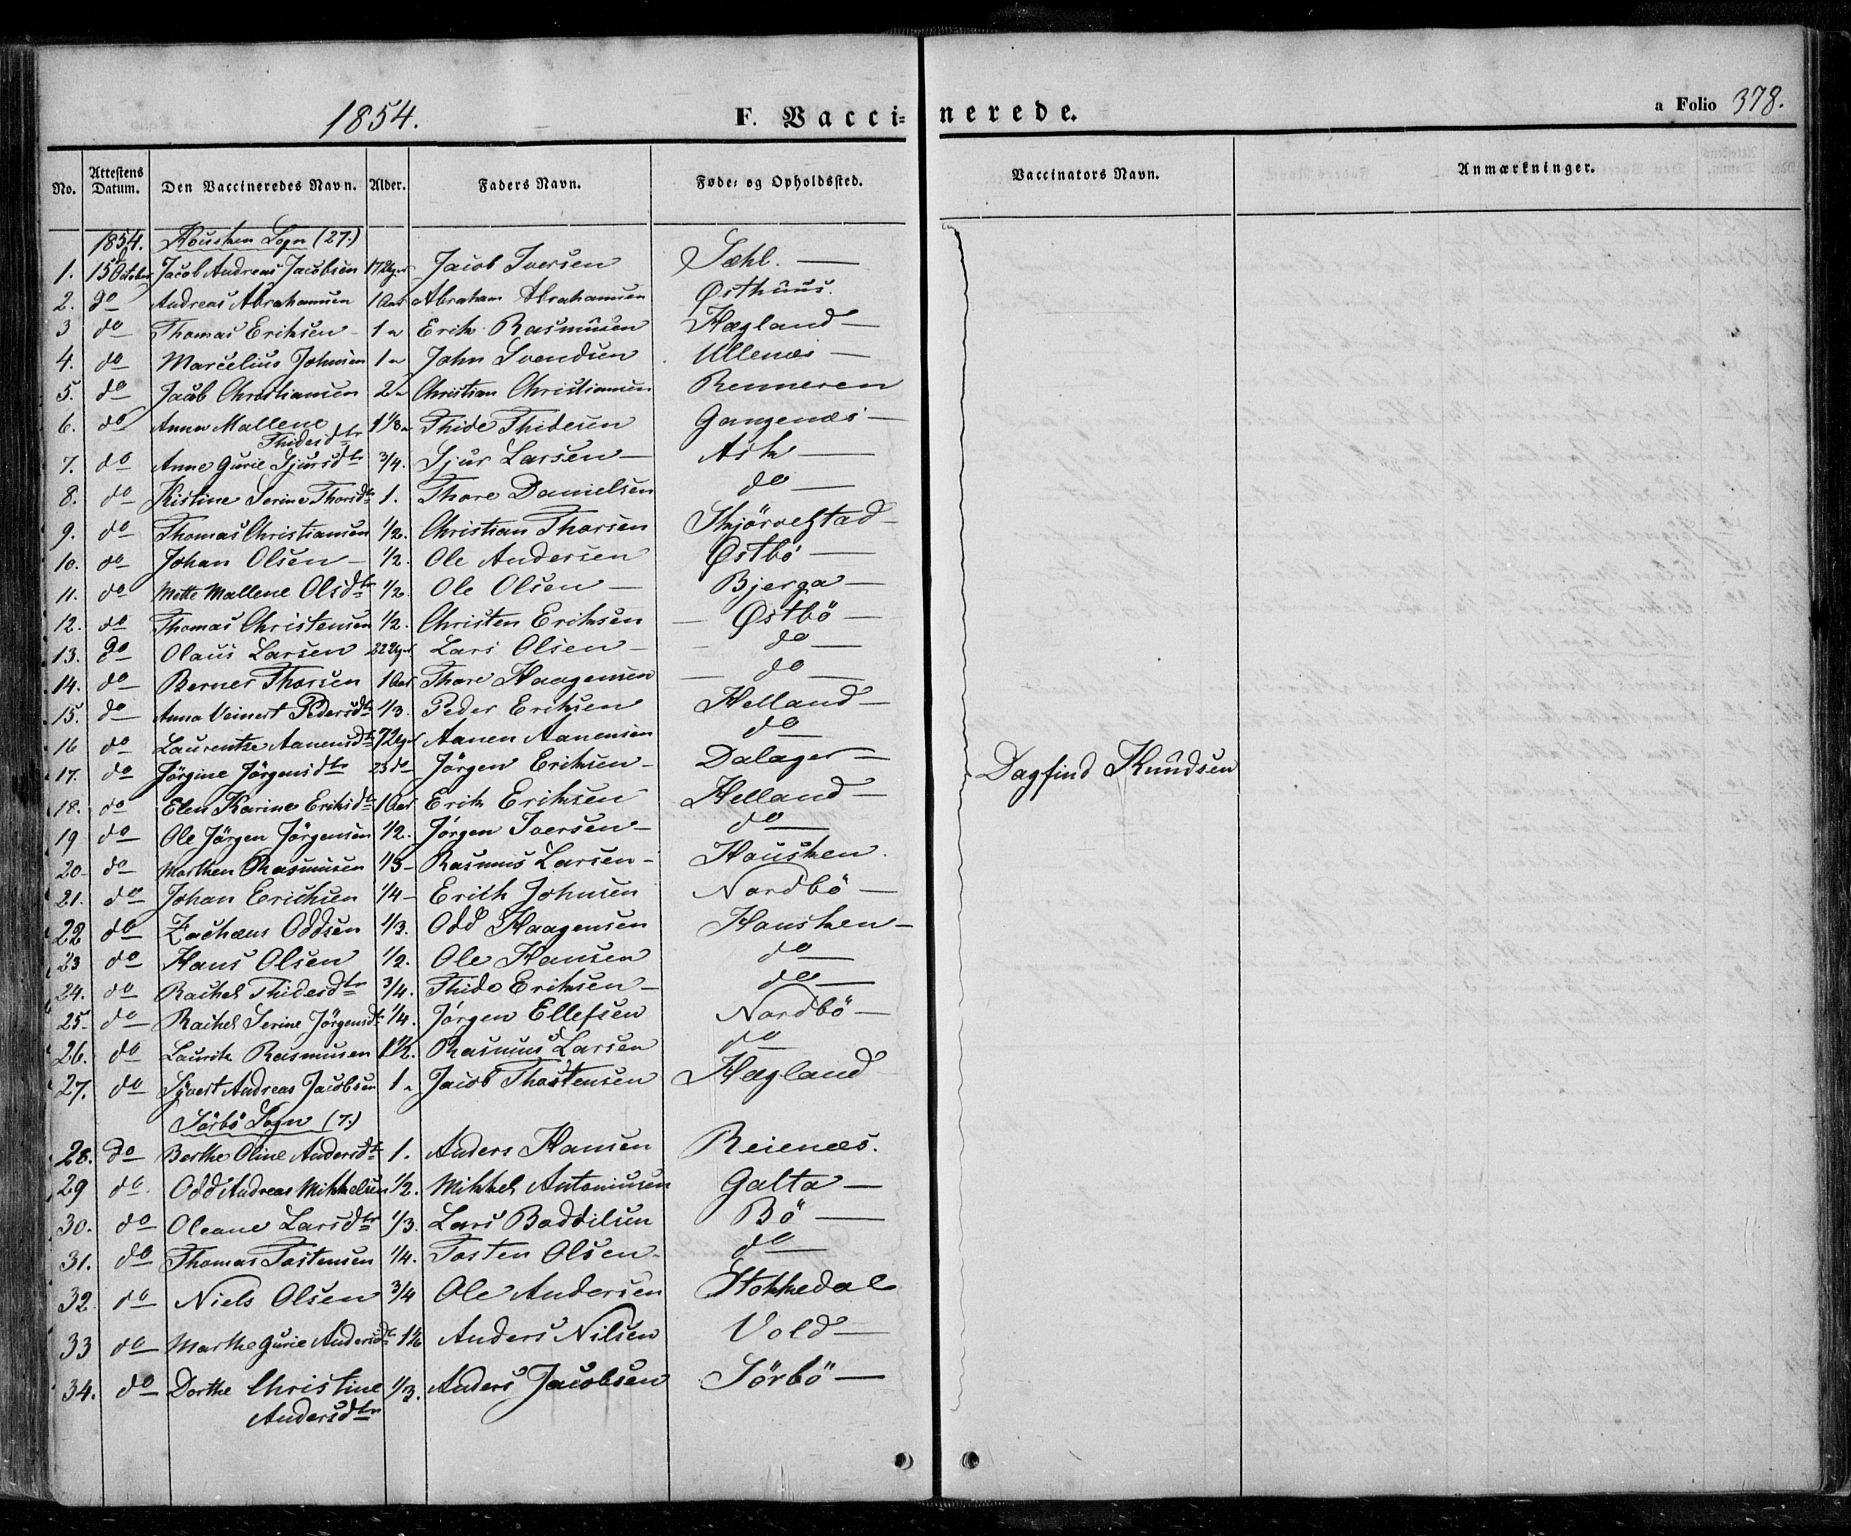 1854. F. Vaccinerede. a Folio 378.
No. Attestens Datum. Den Vaccineredes Navn. Alder. Faders Navn. Føde- og Opholdssted. Vaccinators Navn. Anmærkninger.
1854. Housken Sogn (27.)
1. 15 October Jacob Andreas Jacobsen 17 Uger Jacob Iversen Sæhl. —
2. do Andreas Abrahamsen 1 Aar Abraham Abrahamsen Østhuus.
3 do Thomas Eriksen 1 " Erik Rasmusen Hægland —
4. do Marcelius Johnsen 1 " John Svendsen Ullenæs —
5. do Jacob Christiansen 2 " Christian Christiansen Renneren
6. do Anna Mallene Thidesdtr 1 1/3 " Thide Thidesen Gangenæs —
7. do Anne Gurie Sjursdtr 3/4. Sjur Larsen — Ask —
8. do Kistine Serine Thorsdtr 1. Thore Danielsen do —
9. do Thomas Christiansen 1/2. Christian Thorsen Skjørvestad —
10. do Johan Olsen — 1/2. Ole Andersen Østbø —
11. do Mette Mallene Olsdtr 1/2. Ole Olsen — Bjerga —
12. do Thomas Christensen 1/2. Christen Eriksen — Østbö —
13. do Olaus Larsen 22 Uger Lars Olsen — do —
14. do Berner Thorsen 1 Aar Thore Haagensen — do —
15. do Anna Veinert Pedersdtr 1/3. Peder Eriksen Helland —
16 do Laurentze Aanensdtr 7 Uger Aanen Aanensen do —
17. do Jørgine Jørgensdtr 23 do Jørgen Eriksen — Dalager — Dagfind Knudsen
18. do Elen Karine Eriksdtr 1 Aar Erik Eriksen Helland —
19 do Ole Jørgen Jørgensen 1/2. Jørgen Iversen — do —
20 — do Morthen Rasmusen 1/3 — Rasmus Larsen — Housken.
21. do Johan Erichsen 1/4 — Erich Johnsen Nordbö —
22 do Zachæus Oddsen 1/3. Odd Haagensen Housken —
23 do Hans Olsen 1/2. Ole Hansen do —
24. do Rachel Thidesdtr 3/4. Thide Eriksen — do —
25 — do Rachel Serine Jörgensdtr 1/4. Jörgen Ellefsen Nordbö —
26. do Laurits Rasmusen 1 1/2. Rasmus Larsen do —
27. do Sjvert Andreas Jacobsen 1 " Jacob Thostensen Hægland
Sörbö Sogn (7.)
28. do Berthe Oline Andersdtr 1. Anders Hansen Reienæs.
29 do Odd Andreas Mikkelsen 1/2. Mikkel Antoniusen Galta —
30. do Oleane Larsdtr 1/3. Lars Boddilsen Bö —
31. do Thomas Tostensen 1/4. Tosten Olsen — do —
32. do Niels Olsen 3/4 Ole Andersen Stokkedal
33 do Marthe Gurie Andersdtr 1 1/2 Anders Nilsen Vold —
34. do Dorthe Christine Andersdtr 1/3. Anders Jacobsen Sörbö —